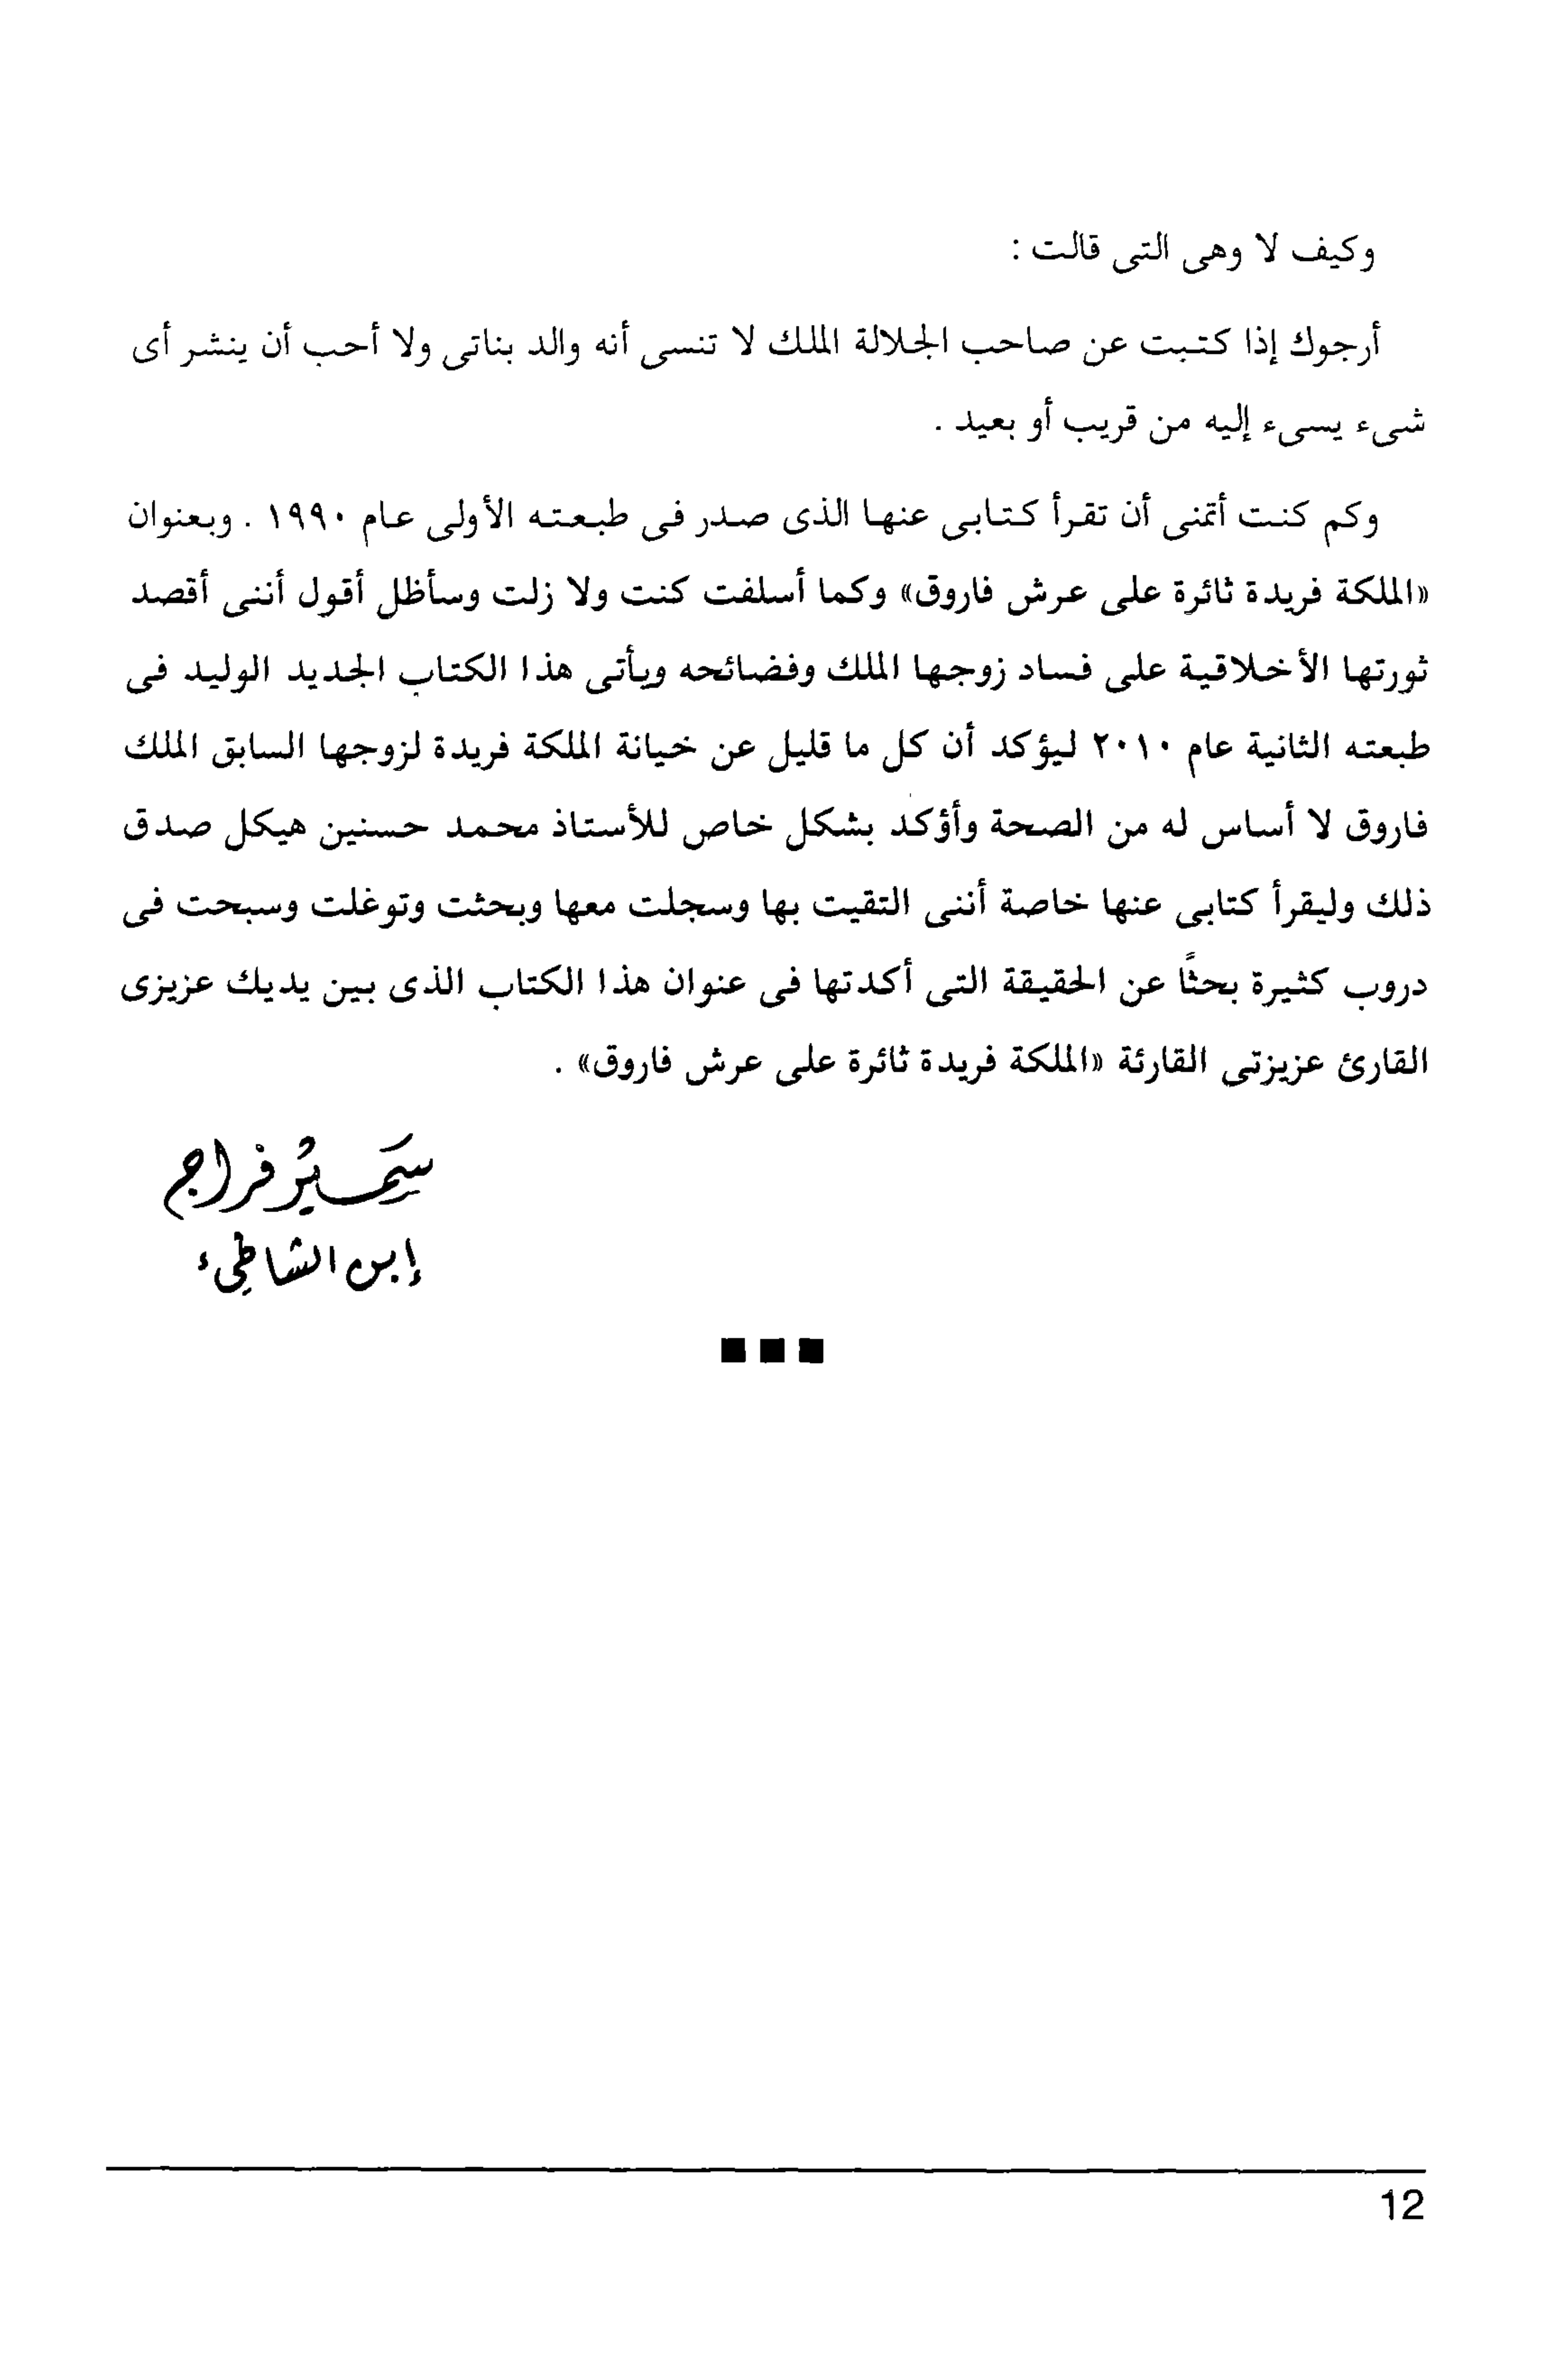 وكيف لا وهى التى قالت :
أرجوك إذا كتبت عن صاحب الجلالة الملك لا تنسى أنه والد بناتى ولا أحب أن ينشر أى
شىء يسىء إليه من قريب أو بعيد .
وكم كنت أتمنى أن تقرأ كتابى عنها الذى صدر فى طبعته الأولى عام ١٩٩٠ . وبعنوان
«الملكة فريدة ثائرة على عرش فاروق» وكما أسلفت كنت ولا زلت وسأظل أقول أننى أقصد
ثورتها الأخلاقية على فساد زوجها الملك وفضائحه ويأتى هذا الكتاب الجديد الوليد فى
طبعته الثانية عام ٢٠١٠ ليؤكد أن كل ما قليل عن خيانة الملكة فريدة لزوجها السابق الملك
فاروق لا أساس له من الصحة وأؤكد بشكل خاص للأستاذ محمد حسنين هيكل صدق
ذلك وليقرأ كتابى عنها خاصة أننى التقيت بها وسجلت معها وبحثت وتوغلت وسبحت فى
دروب كثيرة بحثًا عن الحقيقة التى أكدتها فى عنوان هذا الكتاب الذى بين يديك عزيزى
القارئ عزيزتى القارئة «الملكة فريدة ثائرة على عرش فاروق» .
سمير فراج
إبن الشاطىء
12